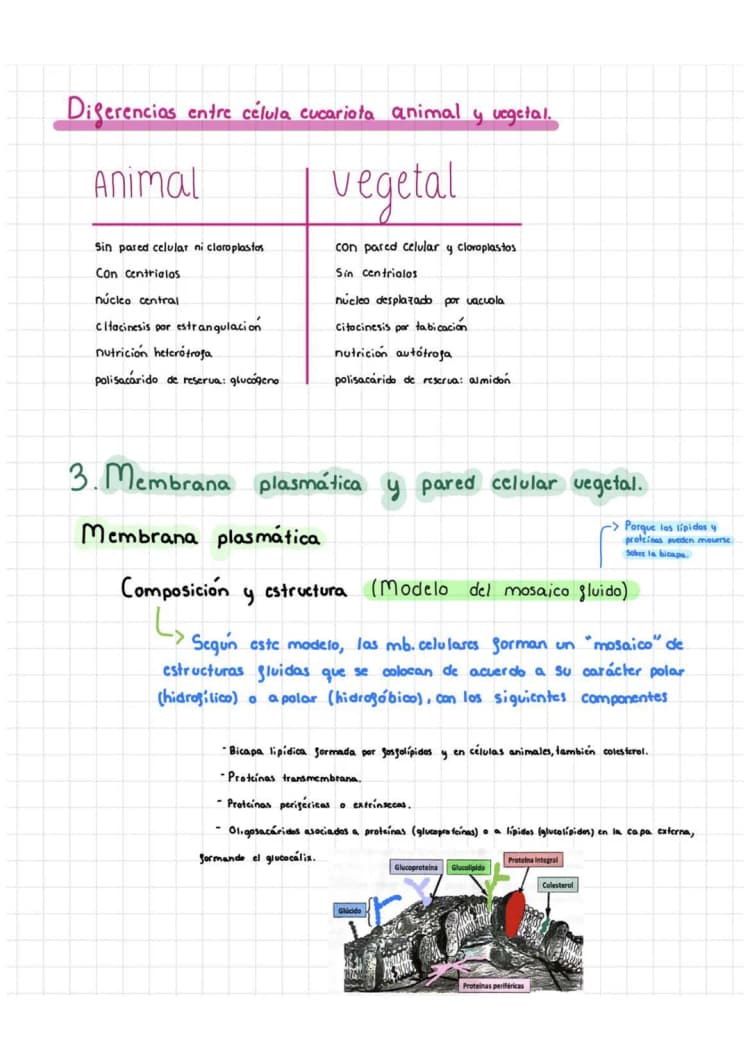 Diferencias entre célula eucariota animal y vegetal.
Animal
vegetal
Sin pared celular ni cloroplastos
con pared celular y cloroplastos
Con centriolos
Sin centriolos
núcleo central
núcleo desplazado por vacuola
citocinesis por estrangulación
citocinesis por tabicación
nutrición heterótrofa
nutrición autótrofa
polisacárido de reserva: glucógeno
polisacárido de reserva: almidón
3. Membrana plasmática y pared celular vegetal.
Membrana plasmática
-> Porque los lípidos y
proteínas pueden moverse
sobre la bicapa.
Composición y estructura (Modelo del mosaico fluido)
Según este modelo, las mb. celulares forman un "mosaico" de
estructuras fluidas que se colocan de acuerdo a su carácter polar
(hidrofílico) o apolar (hidrofóbico), con los siguientes componentes
- Bicapa lipídica formada por fosfolípidos y en células animales, también colesterol.
- Proteínas transmembrana.
- Proteínas periféricas o extrínsecas.
- Oligosacáridos asociados a proteínas (glucoproteínas) o a lípidos (glucolípidos) en la capa externa,
formando el glucocálix.
Glucoproteína
Glucolípido
Proteína Integral
Colesterol
Glúcido
Proteínas periféricas